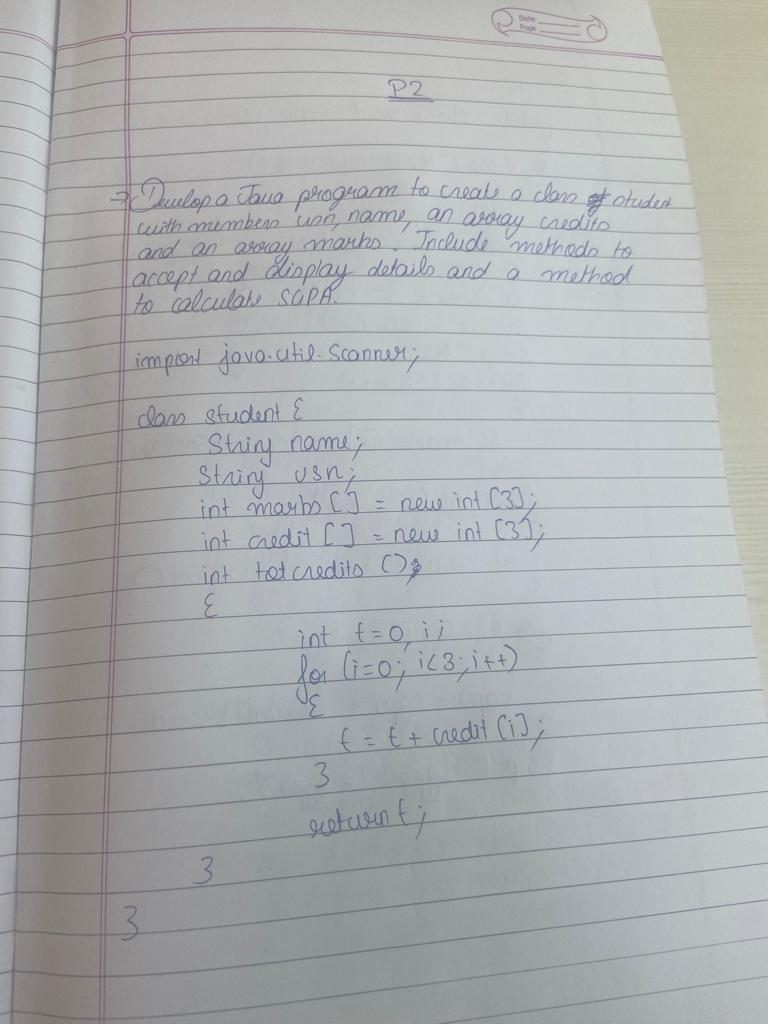 Date
Page
P2
→ Develop a Java program to create a class student
with members usn, name, an array credits
and an array marks. Include methods to
accept and display details and a method
to calculate SGPA.
import java.util.Scanner;
class student {
String name;
String usn;
int marks [] = new int [3];
int credit [] = new int [3];
int totcredits ()
{
int t=0, i;
for (i=0; i<3; i++)
{
t = t + credit [i];
}
return t;
}
}